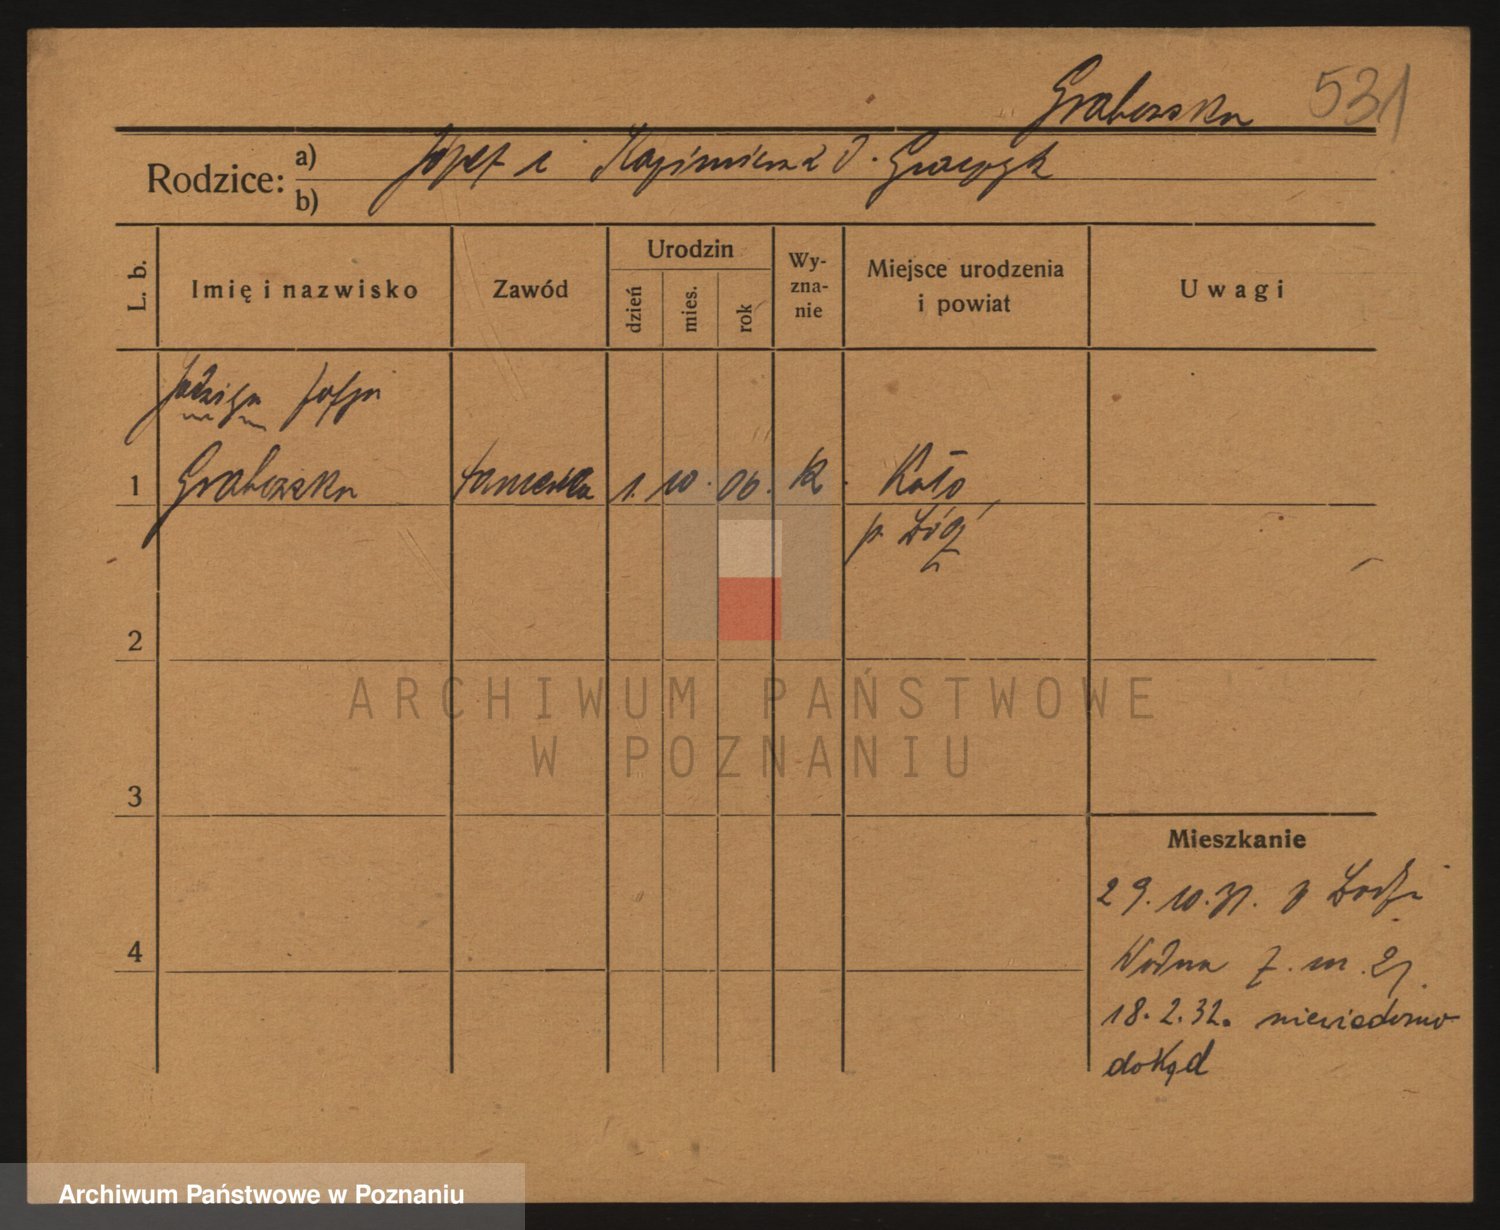 Grabowska 531
Rodzice: a) Józef i Kazimiera d. Graczyk
b)
L. b.
Imię i nazwisko
Zawód
Urodzin
dzień
mies.
rok
Wy-
zna-
nie
Miejsce urodzenia
i powiat
Uwagi
Jadwiga Zofja
1 Grabowska 1. 10. 06. k. Koło
p.
2
3
4
Mieszkanie
29.10.31. z Łodzi
Wodna 7. m. 21
18.2.32. niewiadomo
dokąd
ARCHIWUM PAŃSTWOWE
W POZNANIU
Archiwum Państwowe w Poznaniu